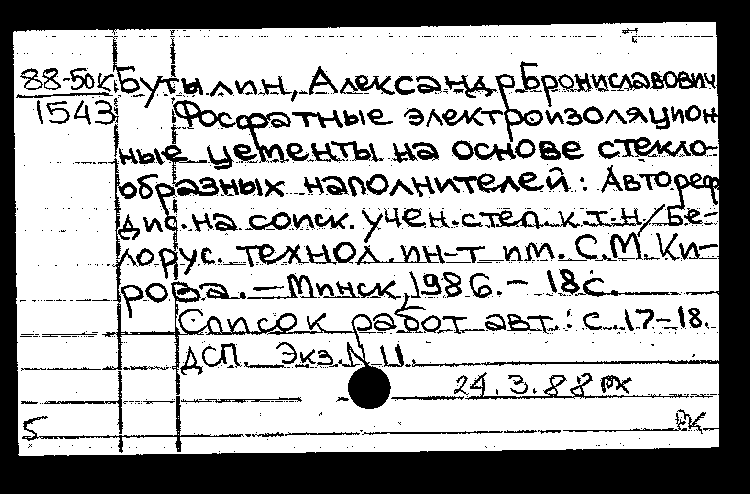 88-50к Бутылин, Александр Брониславович
1543 Фосфатные электроизоляцион
ные цементы на основе стекло-
образных наполнителей: Автореф
дис. на соиск. учен. степ. к.т.н/Бе-
лорус. технол. ин-т им. С.М. Ки-
рова. — Минск, 1986. — 18с.
Список работ авт.: с. 17-18.
ДСП. Экз. N 11.
24.3.88
5